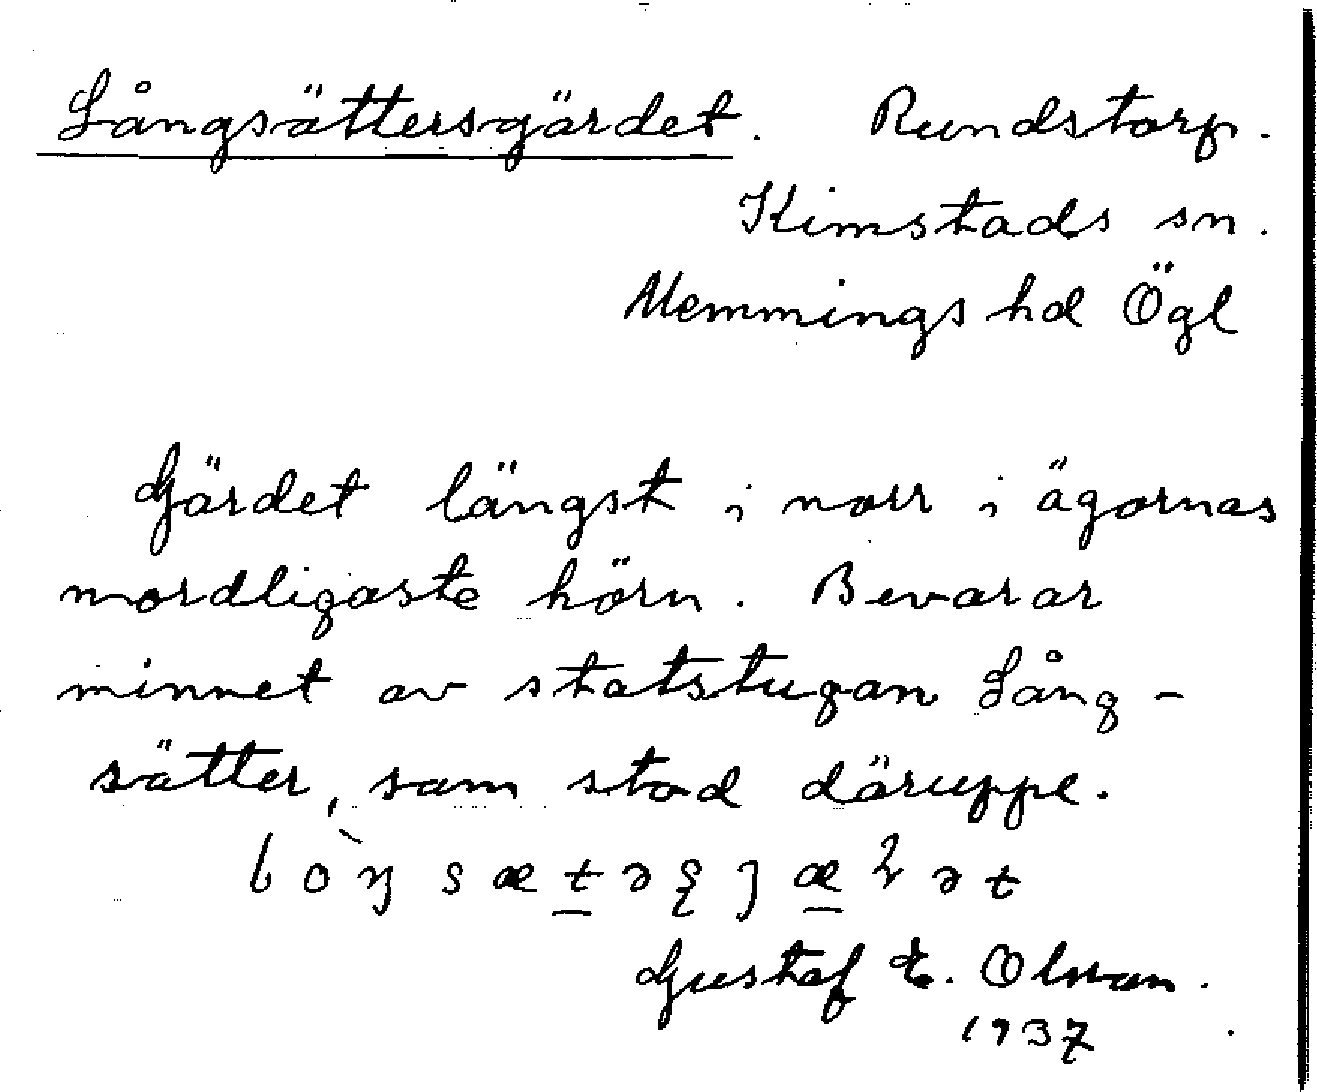 Långsättersgärdet. Rundstorp.
Kimstads sn.
Memmings hd Ögl
Gärdet längst i norr i ägornas
nordligaste hörn. Bevarar
minnet av statstugan Lång-
sätter, som stod däruppe.
Gustaf E. Olsson.
1937